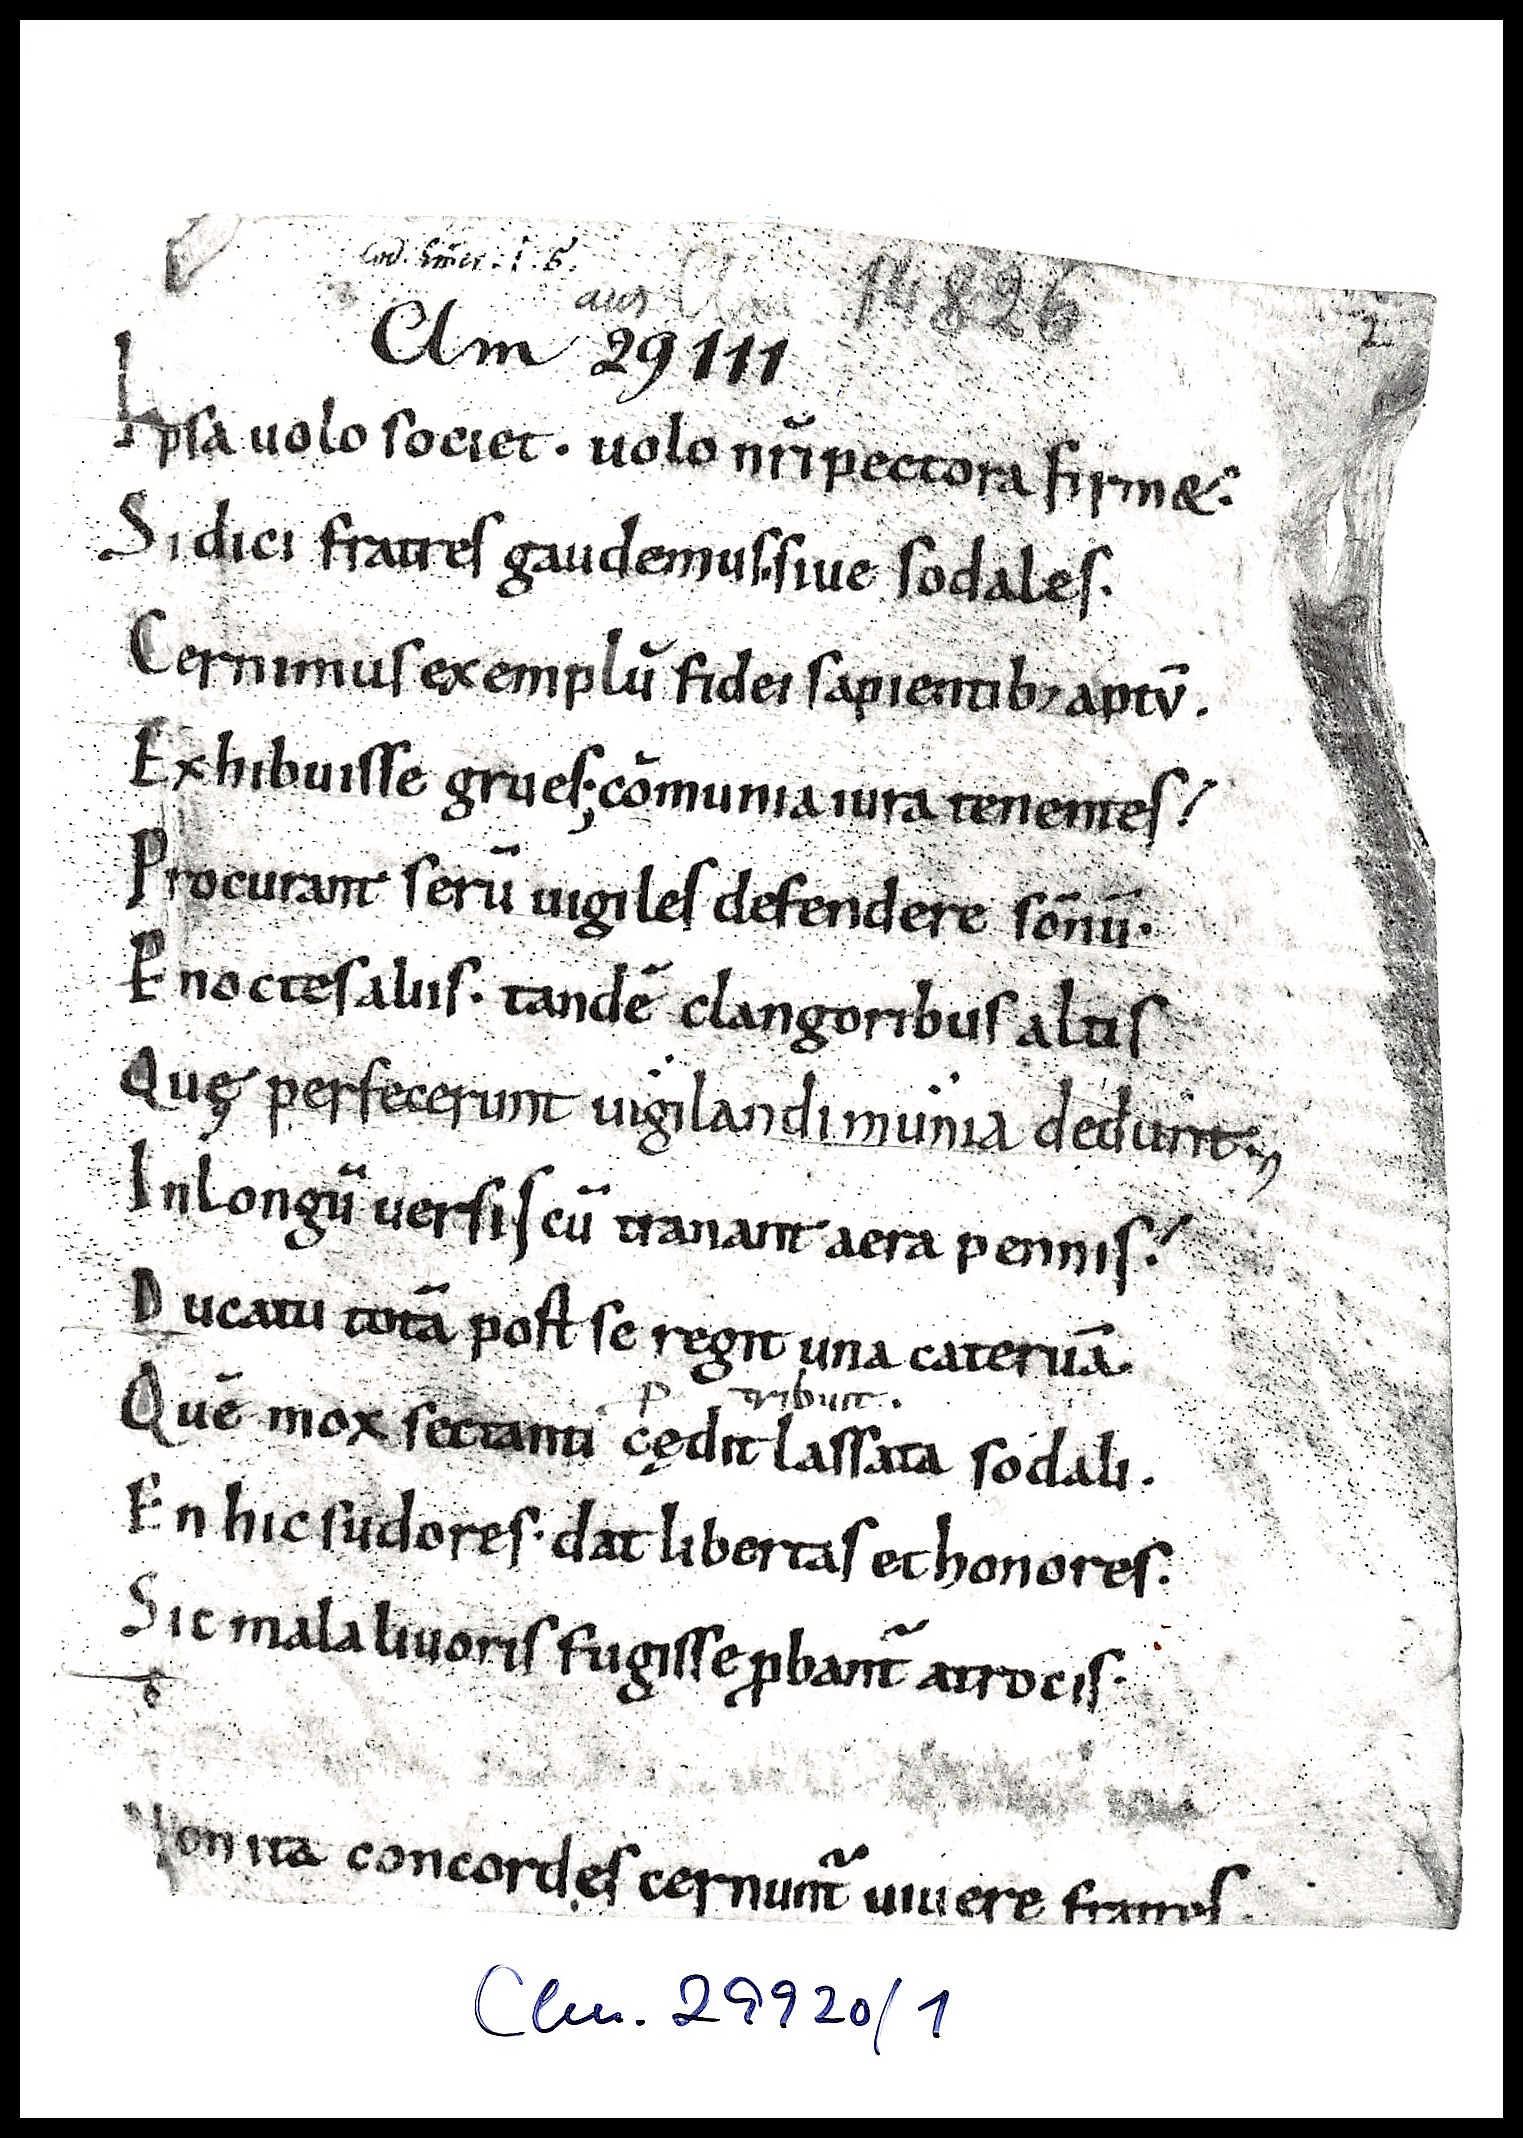 Cod. Em̄er. i. 6.
aus Clm 14826
2
Clm 29111
Ipsa uolo societ · uolo nr̄i pectora firm&.
Si dici fratres gaudemus · siue sodales.
Cernimus exemplū fidei sapientib; aptū.
Exhibuisse grues; cōmunia iura tenentes!
Procurant serū uigiles defendere sōnū·
E noctes aliis · tandē clangoribus altis
Quę perfecerunt uigilandi munia dedunt·,
In longū uersis cū tranant aera pennis!
Ducatu totā post se regit una cateruā.
p tribuit.
Quē mox sectanti cędit lassata sodali.
En hic sudores· dat libertas et honores.
Sic mala liuoris fugisse ꝓbant᷑ atrocis.
Non ita concordes cernunt᷑ uiuere fratres.
Clm. 29920/1